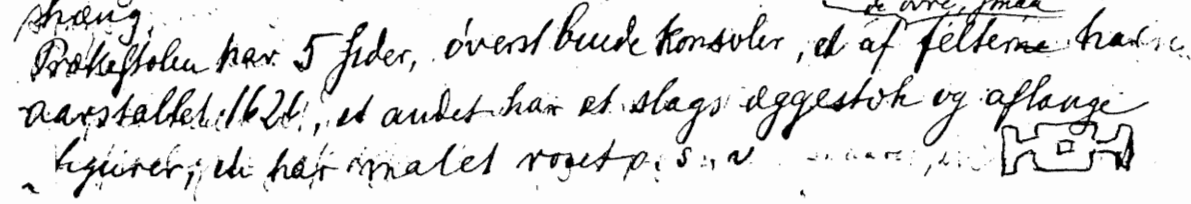 stræng.
de övre, smaa
Prækestolen har 5 sider, överst bende konsoler, et af felterne har
aarstallet 1621, et andet har et slags æggestok og aflange
figurer, et har malet roset o. s. v